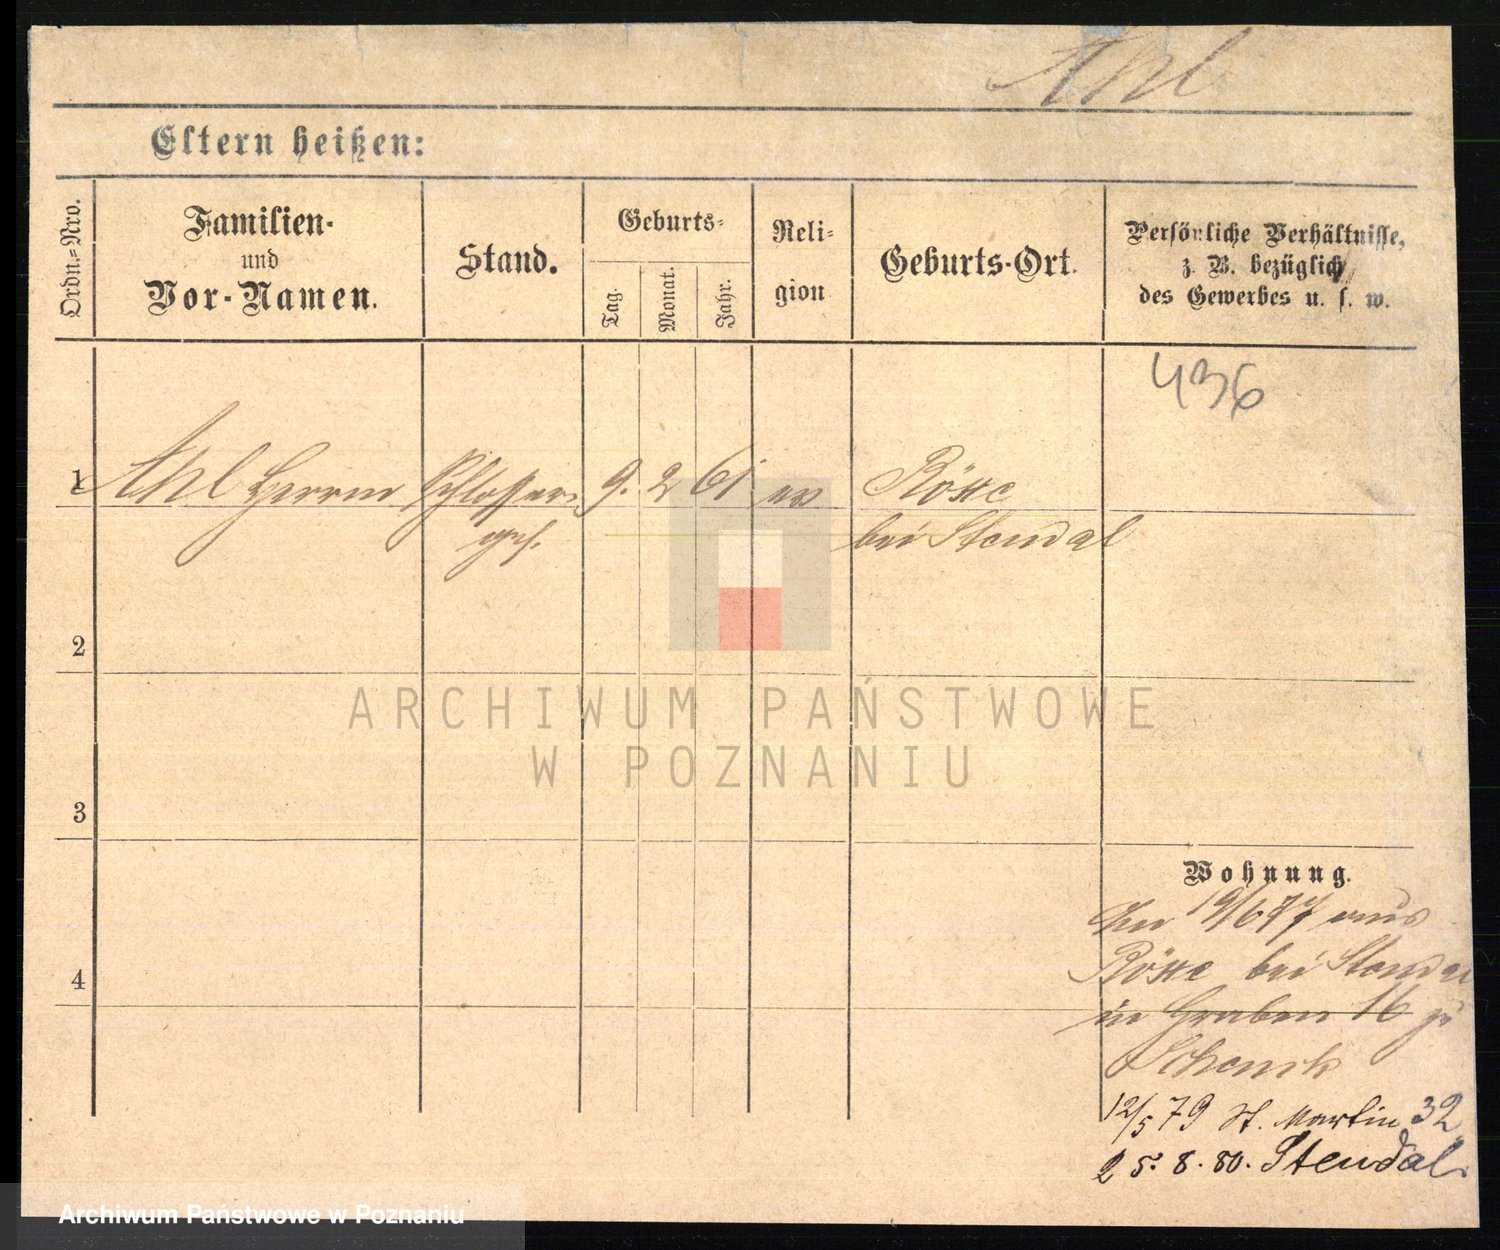 Ahl
Eltern heißen:
Ordn.-Nro.
Familien-
und
Vor-Namen.
Stand.
Geburts-
Tag.
Monat.
Jahr.
Reli-
gion
Geburts-Ort.
Persönliche Verhältnisse,
z. B. bezüglich
des Gewerbes u. s. w.
436
1 Ahl Herrm Schlosser 9. 2 61 ev
ges.
bei Stendal
2
ARCHIWUM PAŃSTWOWE
W POZNANIU
3
Wohnung.
19/6 77 aus
bei Stendal
4
in Graben 16 zu
Schenk
12/5 79 St. Martin 32
25. 8. 80. Stendal.
Archiwum Państwowe w Poznaniu